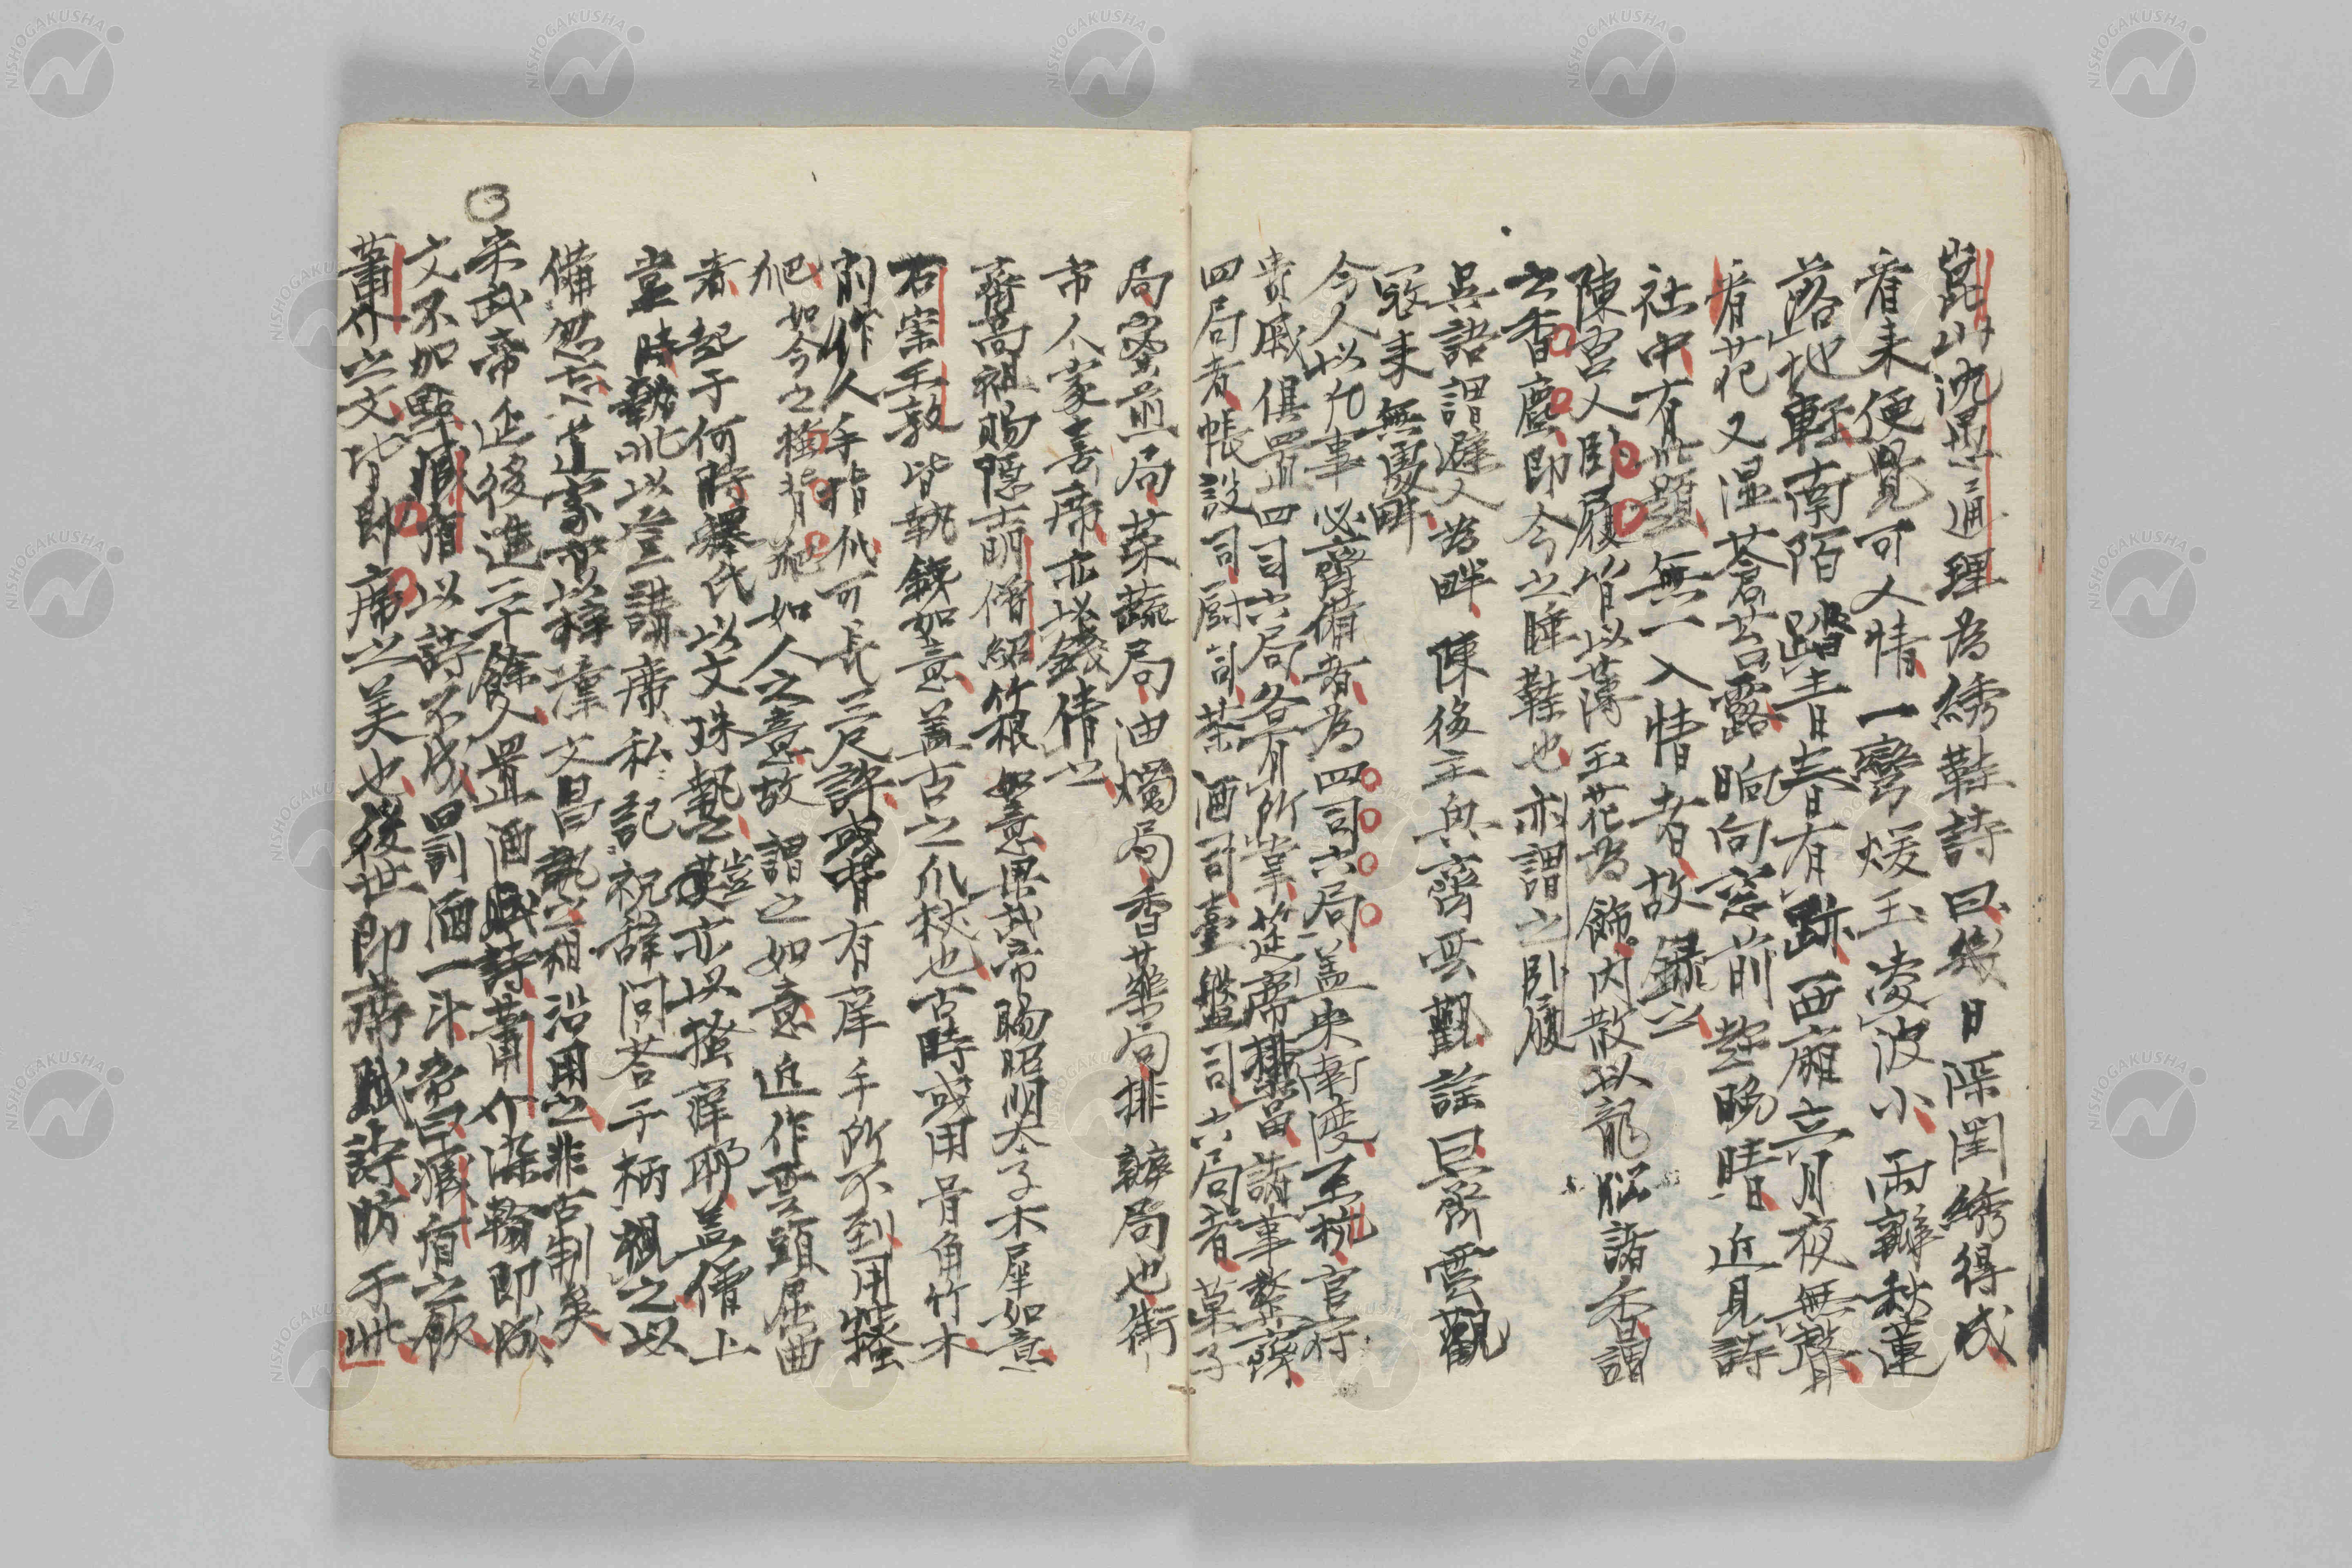 崑山沈愚通理為綉鞋詩曰幾日深閨綉得成
看来便覺可人情一彎煖玉凌波小兩瓣秋蓮
落地軽南陌踏青春有跡西廂立月夜無聲
看花又湿蒼苔露晌向窓前趂晩晴近見詩
社中有此題無一入情者故録之
陳宮人卧履皆以薄玉花為飾内散以龍脳諸香謂
之香塵即今之睡鞋也亦謂之卧履
呉語謂避人為畔陳後主與齊雲觀謡曰齊雲觀
冦来無處畔
今人以凡事必齊備者為四司六局盖宋南渡至杭官府
貴戚俱置四司六局各有所掌筵席排當諸事整齊
四局者帳設司厨司茶酒司臺盤司六局者菓子
局蜜煎局菜蔬局油燭局香藥局排辦局也街
市人家喜席亦以錢倩之
齊高祖賜隱士明僧紹竹根如意梁武帝賜昭明太子木犀如意
石崇王敦皆執鉄如意盖古之爪杖也古時或用骨角竹木
削作人手指爪可長三尺許或脊有痒手所不到用以搔
爬如今之搔背爬如人之意故謂之如意近作雲頭屈曲
者起于何時釋氏以文珠執之豈亦以搔痒耶盖僧上
堂時執此以登講席私記祝辞問荅于柄視之以
備忽忘道家亦以釋 文昌執之相沿用之非古制矣
宋武帝延後進二十餘人置酒賦詩蕭介染翰即成
文不加點臧盾以詩不成罰酒一斗帝曰臧盾之飲
蕭介之文皆即席之美也後世即席賦詩昉于此